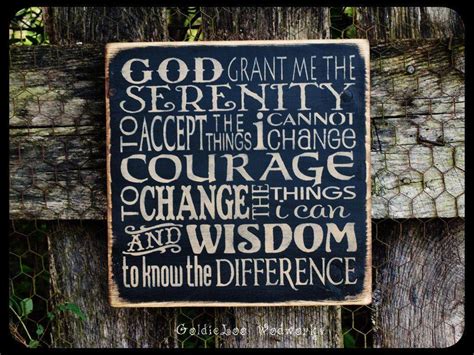 GOD GRANT ME THE
SERENITY
TO ACCEPT THE THINGS i CANNOT CHANGE
COURAGE
TO CHANGE THE THINGS i can
AND WISDOM
to know the DIFFERENCE
GoldieLoo Wodworks